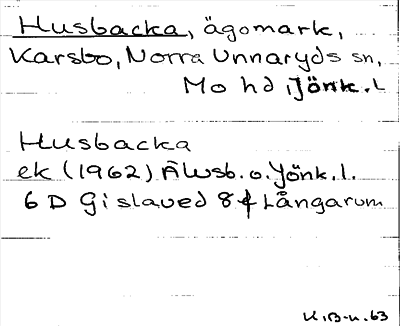 Husbacka, ägomark,
Karsbo, Norra Unnaryds sn,
Mo hd, Jönk. L
Husbacka
ek (1962) Älvsb. o. Jönk. l.
6 D Gislaved 8 f Långarum
K.B-n. 63